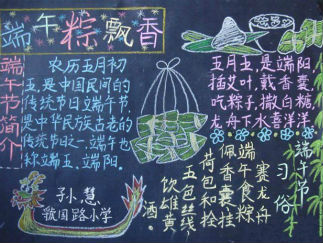 端午粽飘香
端午节简介
农历五月初
五，是中国民间的
传统节日端午节，
是中华民族古老的
传统节日。端午节也
称端五、端阳。
孙慧
皖国路小学
五月五，是端阳
插艾叶，戴香囊，
吃粽子，撒白糖
龙舟下水喜洋洋
端午节
习俗
赛龙舟
端午食粽
佩香囊
荷包和拴
五色丝线
饮雄黄
酒。